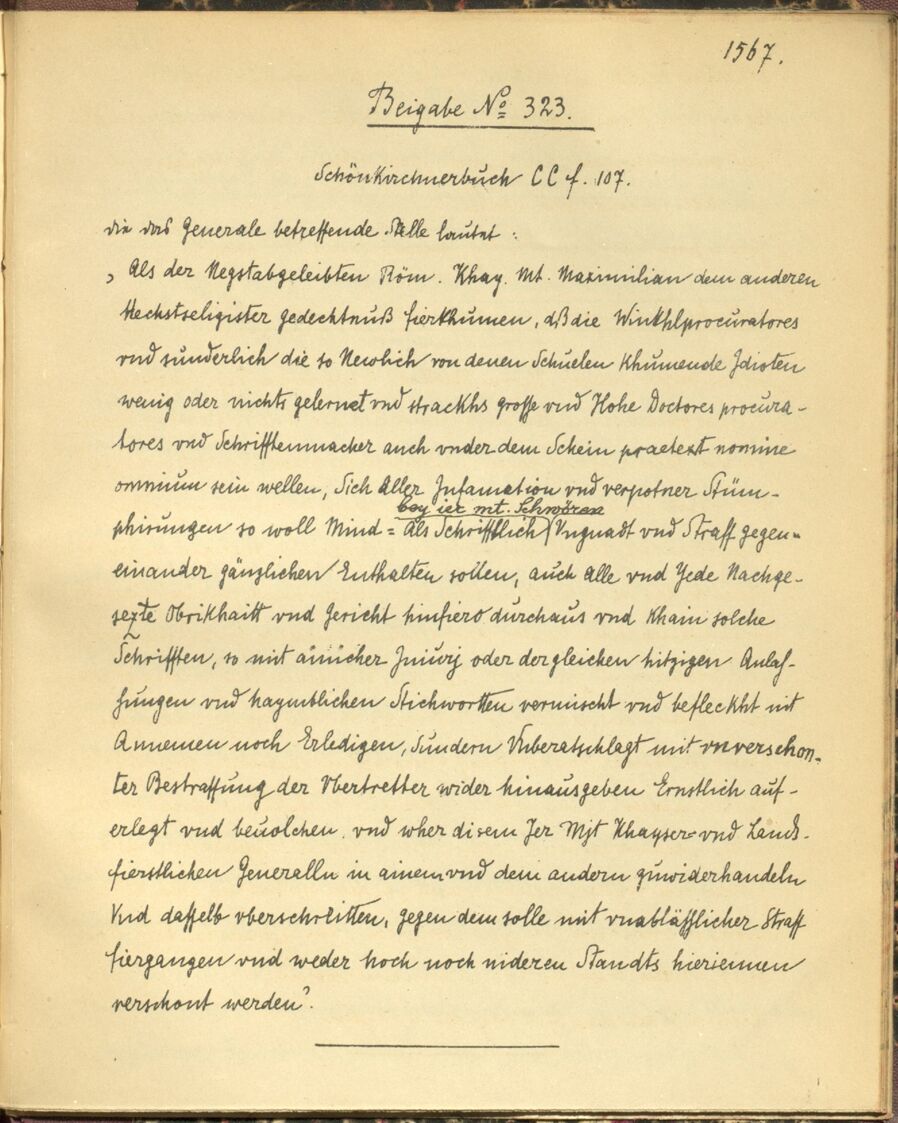 1567.
Beigabe No 323.
Schönkirchnerbuch CC f. 107.
die das Generale betreffende Stelle lautet:
„Als der Negstabgeleibten Röm. Khay. Mt. Maximilian dem anderen
Hechstseligister gedechtnuß fierkhumen, dß die Winkhlprocuratores
vnd sunderlich die so Newlich von denen Schuelen khumende Idioten
wenig oder nichts gelernet vnd strackhs grosse vnd Hohe Doctores procura-
tores vnd Schrifftenmacher auch vnder dem Schein praetext nomine
omnium sein wellen, Sich Aller Infamation vnd verpotner Stüm-
bey ier mt. Schwären
phirungen so woll Mind= Als Schrifftlich Vngnadt vnd Straff gegen=
einander gänzlichen Enthalten sollen, auch Alle vnd Jede Nachge-
sezte Obrikhaitt vnd Gericht hinfiero durchaus vnd khain solche
Schrifften, so mit ainicher Iniurj oder dergleichen hitzigen Anlas-
sungen vnd haymblichen Stichwortten vermischt vnd befleckht nit
Annemen noch Erledigen, Sundern Vnberatschlagt mit vnverschon-
ter Bestraffung der Vbertretter wider hinausgeben Ernstlich auf-
erlegt vnd beuolchen. vnd wher disem Jer Mjt Khayser= vnd Lands-
fierstlichen Generalln in ainem vnd dem andern zuwiderhandeln
Vnd dasselb vberschritten, gegen dem solle mit vnablässlicher Straff
fiergangen vnd weder hoch noch nideren Standts hieriennen
verschont werden“.